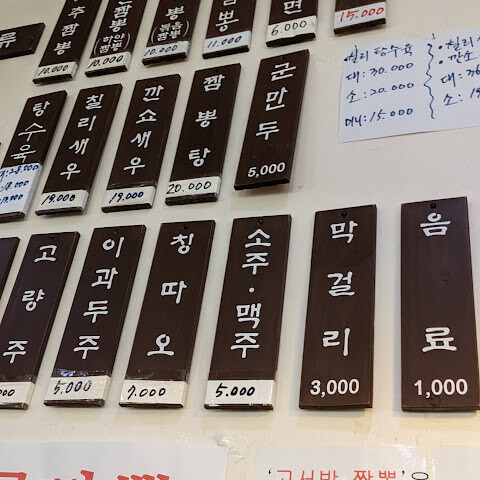 류
주짬뽕 10,000
짬뽕 (하얀짬뽕) 10,000
뽕 (볶음짬뽕) 10,200
짬뽕 11,000
면 6,000
15,000
칠리 탕수육
대: 30,000
소: 20,000
미니: 15,000
칠리
깐소
대:
소:
탕수육
칠리새우 19,000
깐쇼새우 19,000
짬뽕탕 20,000
군만두 5,000
고량주
이과두주 5,000
칭따오 7,000
소주·맥주 5,000
막걸리 3,000
음료 1,000